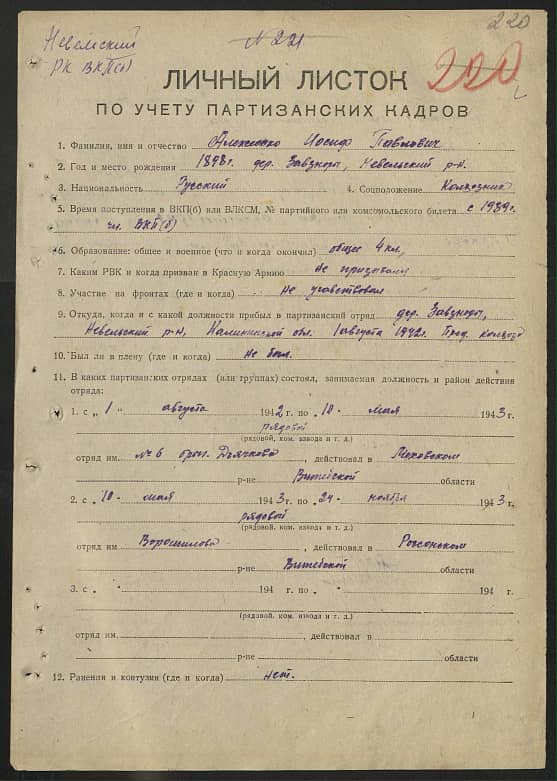 220
Невельский
РК ВКП(б)
№ 221
220
ЛИЧНЫЙ ЛИСТОК
ПО УЧЕТУ ПАРТИЗАНСКИХ КАДРОВ
1. Фамилия, имя и отчество Иосиф Павлович
2. Год и место рождения 1898г. дер. Невельский р-н.
3. Национальность Русский 4. Соцположение Колхозник
5. Время поступления в ВКП(б) или ВЛКСМ, № партийного или комсомольского билета с 1939г.
чл. ВКП(б)
6. Образование: общее и военное (что и когда окончил) общее 4 кл.
7. Каким РВК и когда призван в Красную Армию не призывался
8. Участие на фронтах (где и когда) не участвовал
9. Откуда, когда и с какой должности прибыл в партизанский отряд дер.
Невельский р-н, Калининской обл. 1 августа 1942г. Пред. колхоза
10. Был ли в плену (где и когда) не был.
11. В каких партизанских отрядах (или группах) состоял, занимаемая должность и район действия
отряда:
1. с „ 1 " августа 1942 г. по „ 10 - мая 1943 г.
рядовой
(рядовой, ком. взвода и т. д.)
отряд им. №6 бриг. Дьячкова, действовал в Меховском
р-не Витебской области
2. с „ 10 - мая 1943 г. по „ 24 - ноября 1943 г.
рядовой
(рядовой, ком. взвода и т. д.)
отряд им. Ворошилова, действовал в Россонском
р-не Витебской области
3. с „ " 194 г. по „ " 194 г.
(рядовой, ком. взвода и т. д.)
отряд им. , действовал в
р-не области
12. Ранения и контузии (где и когда) нет.